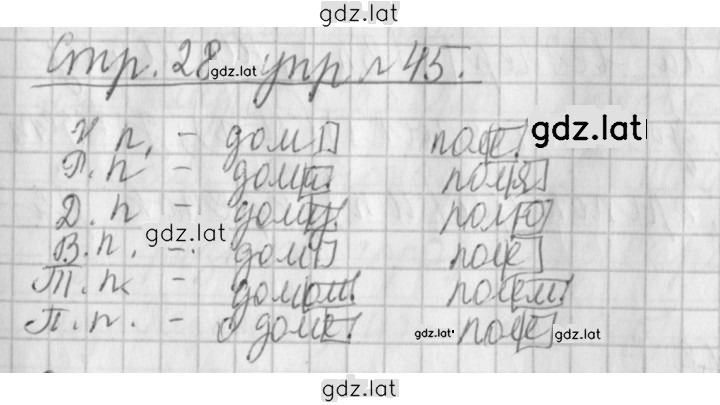 gdz.lat
Стр. 28 gdz.lat упр № 45.
И. п. - дом поле gdz.lat
Р. п. - дома поля
Д. п. - дому полю
gdz.lat
В. п. - дом поле
Т. п. - домом полем
П. п. - о доме gdz.lat поле gdz.lat
gdz.lat